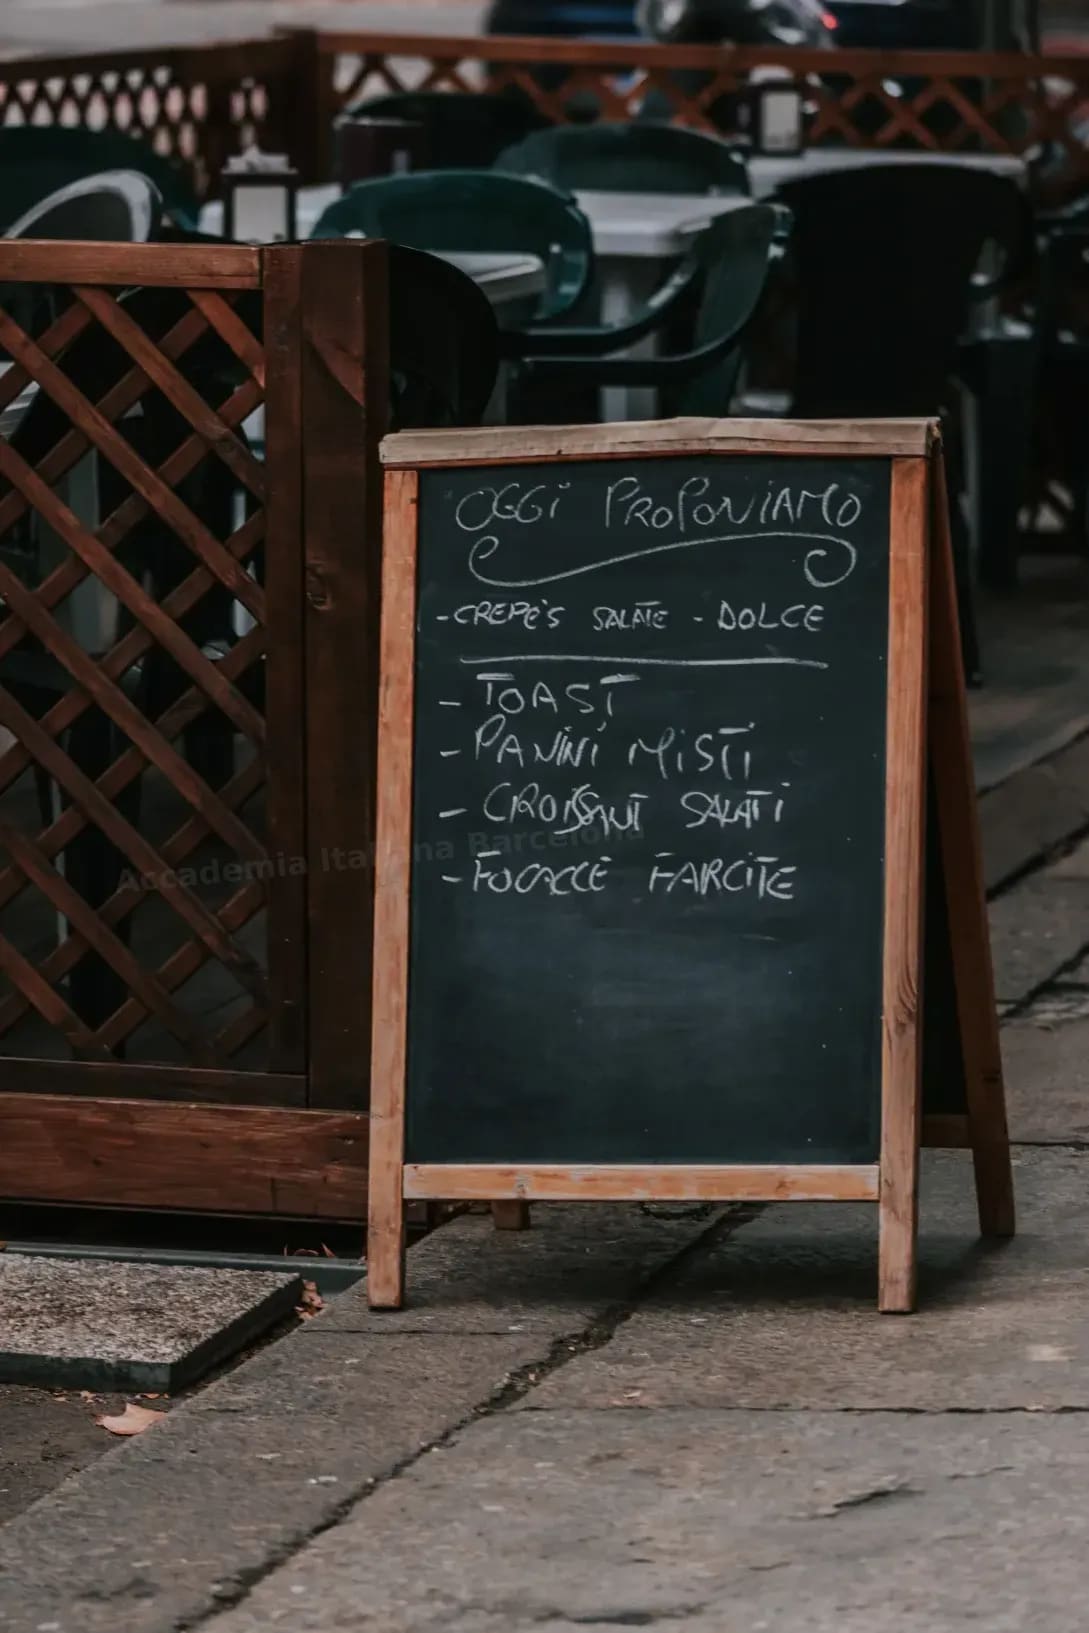 OGGi PROPONiAMO
- CREPE'S SALATE - DOLCE
- TOAST
- PANiNi MiSTi
- CROiSSANT SALATi
- FOCACCE FARCiTE
Accademia Italiana Barcelona